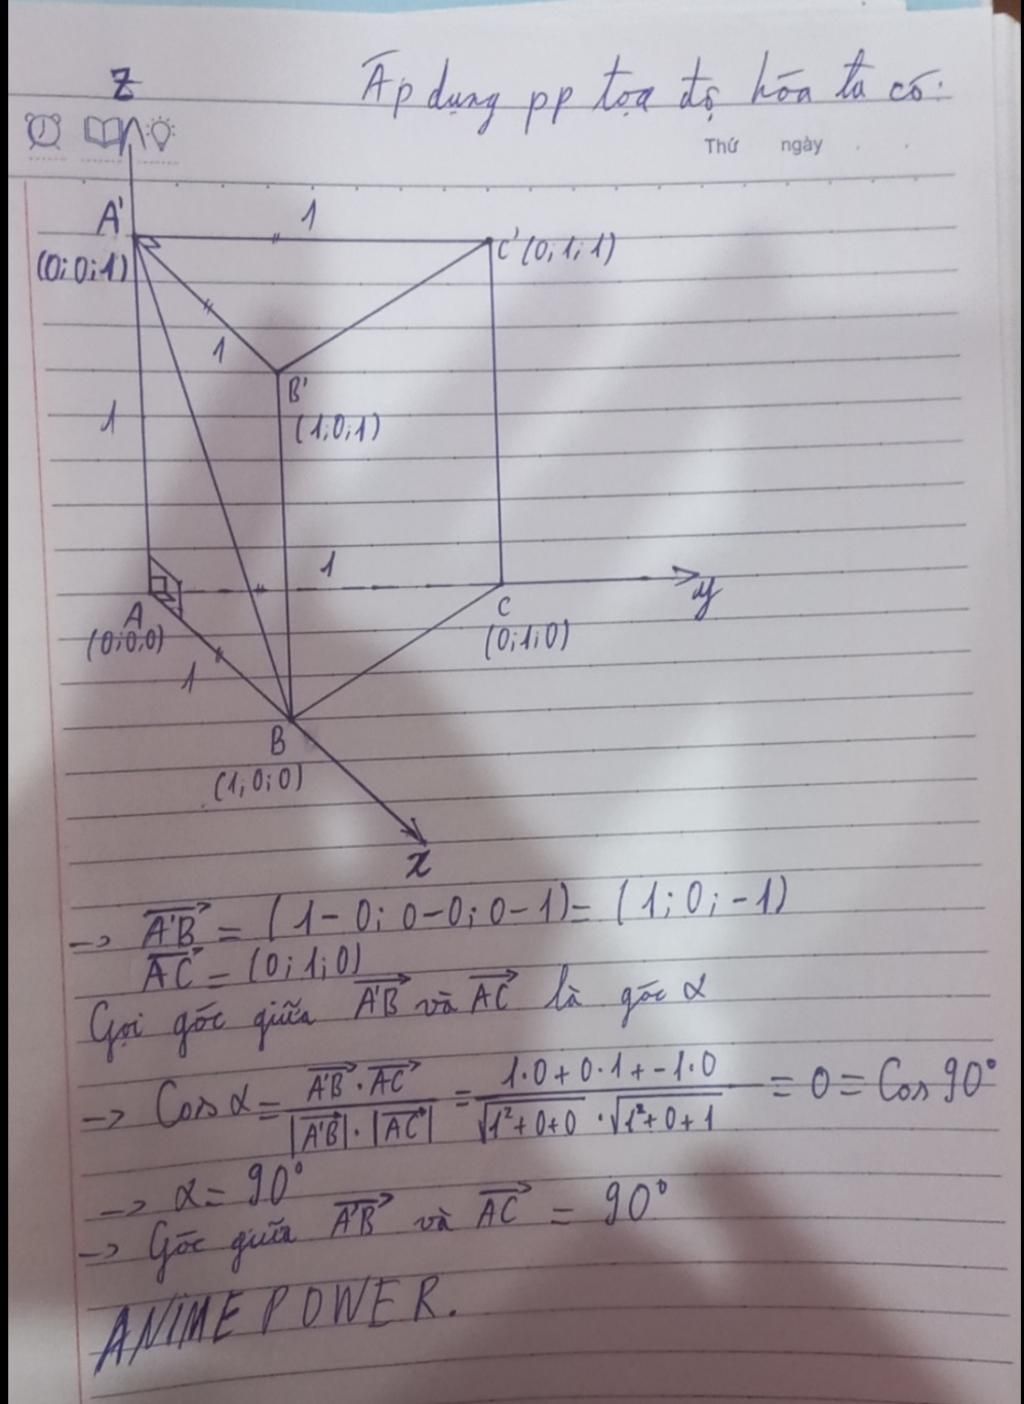 Z
Áp dụng pp tọa độ hóa ta có:
Thứ ngày
A'
1
C' (0; 1; 1)
(0; 0; 1)
1
B'
(1; 0; 1)
1
1
y
A
(0; 0; 0)
C
(0; 1; 0)
1
B
(1; 0; 0)
x
→ A'B = (1-0; 0-0; 0-1) = (1; 0; -1)
AC = (0; 1; 0)
Gọi góc giữa A'B và AC là góc α
→ Cos α = A'B · AC / |A'B| · |AC| = 1·0 + 0·1 + -1·0 / √1²+0+0 · √1²+0+1 = 0 = Cos 90°
→ α = 90°
→ Góc giữa A'B và AC = 90°
ANIME POWER.